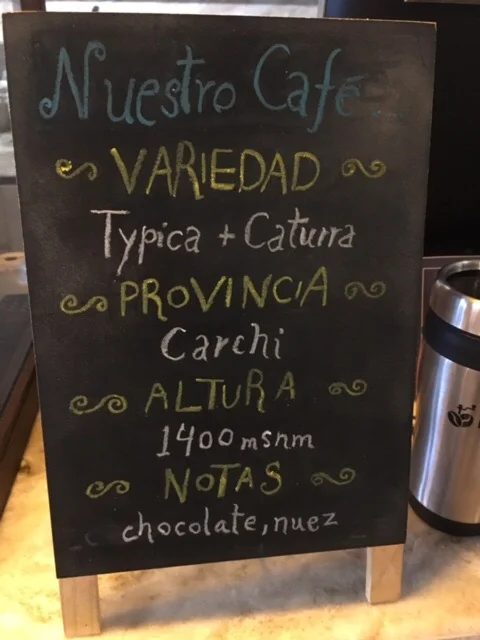 Nuestro Café
VARIEDAD
Typica + Caturra
PROVINCIA
Carchi
ALTURA
1400 msnm
NOTAS
chocolate, nuez